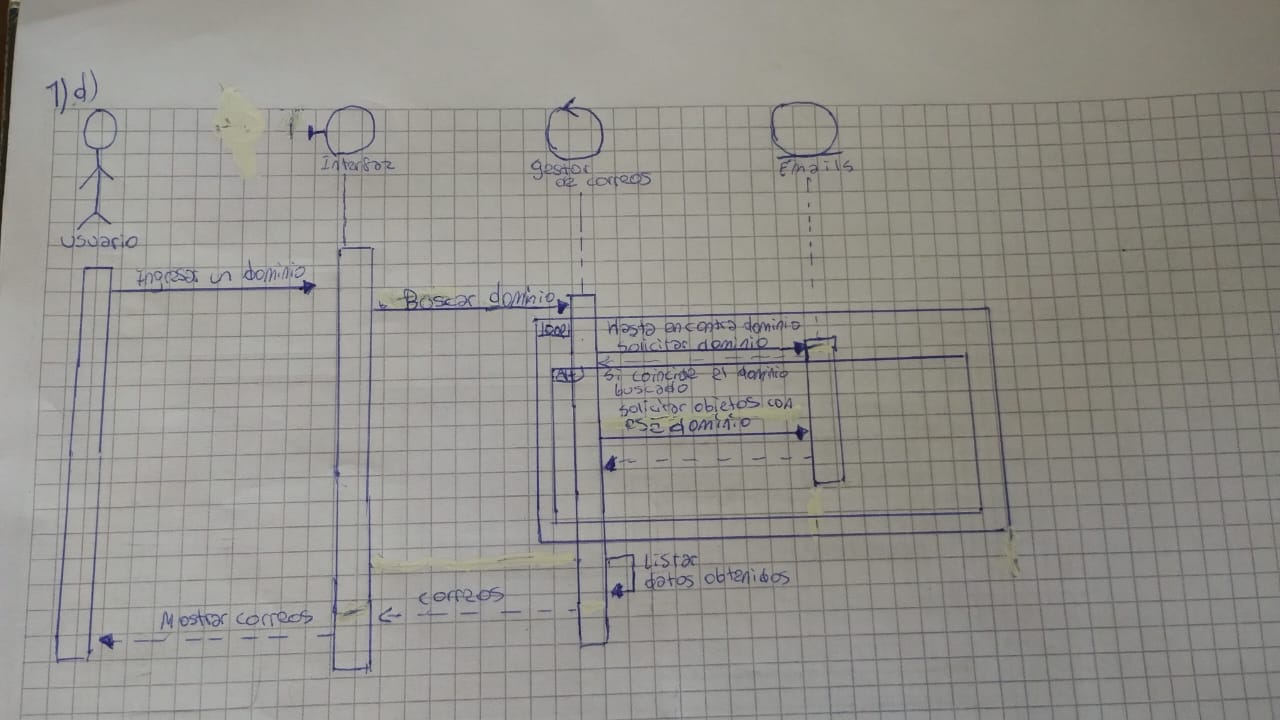 1)d)
Interfaz
Gestor
de correos
Emails
Usuario
Ingresar un dominio
Buscar dominio
loop
Hasta encontra dominio
Solicitar dominio
Alt
Si coincide el dominio
buscado
Solicitar objetos con
ese dominio
Listar
datos obtenidos
correos
Mostrar correos